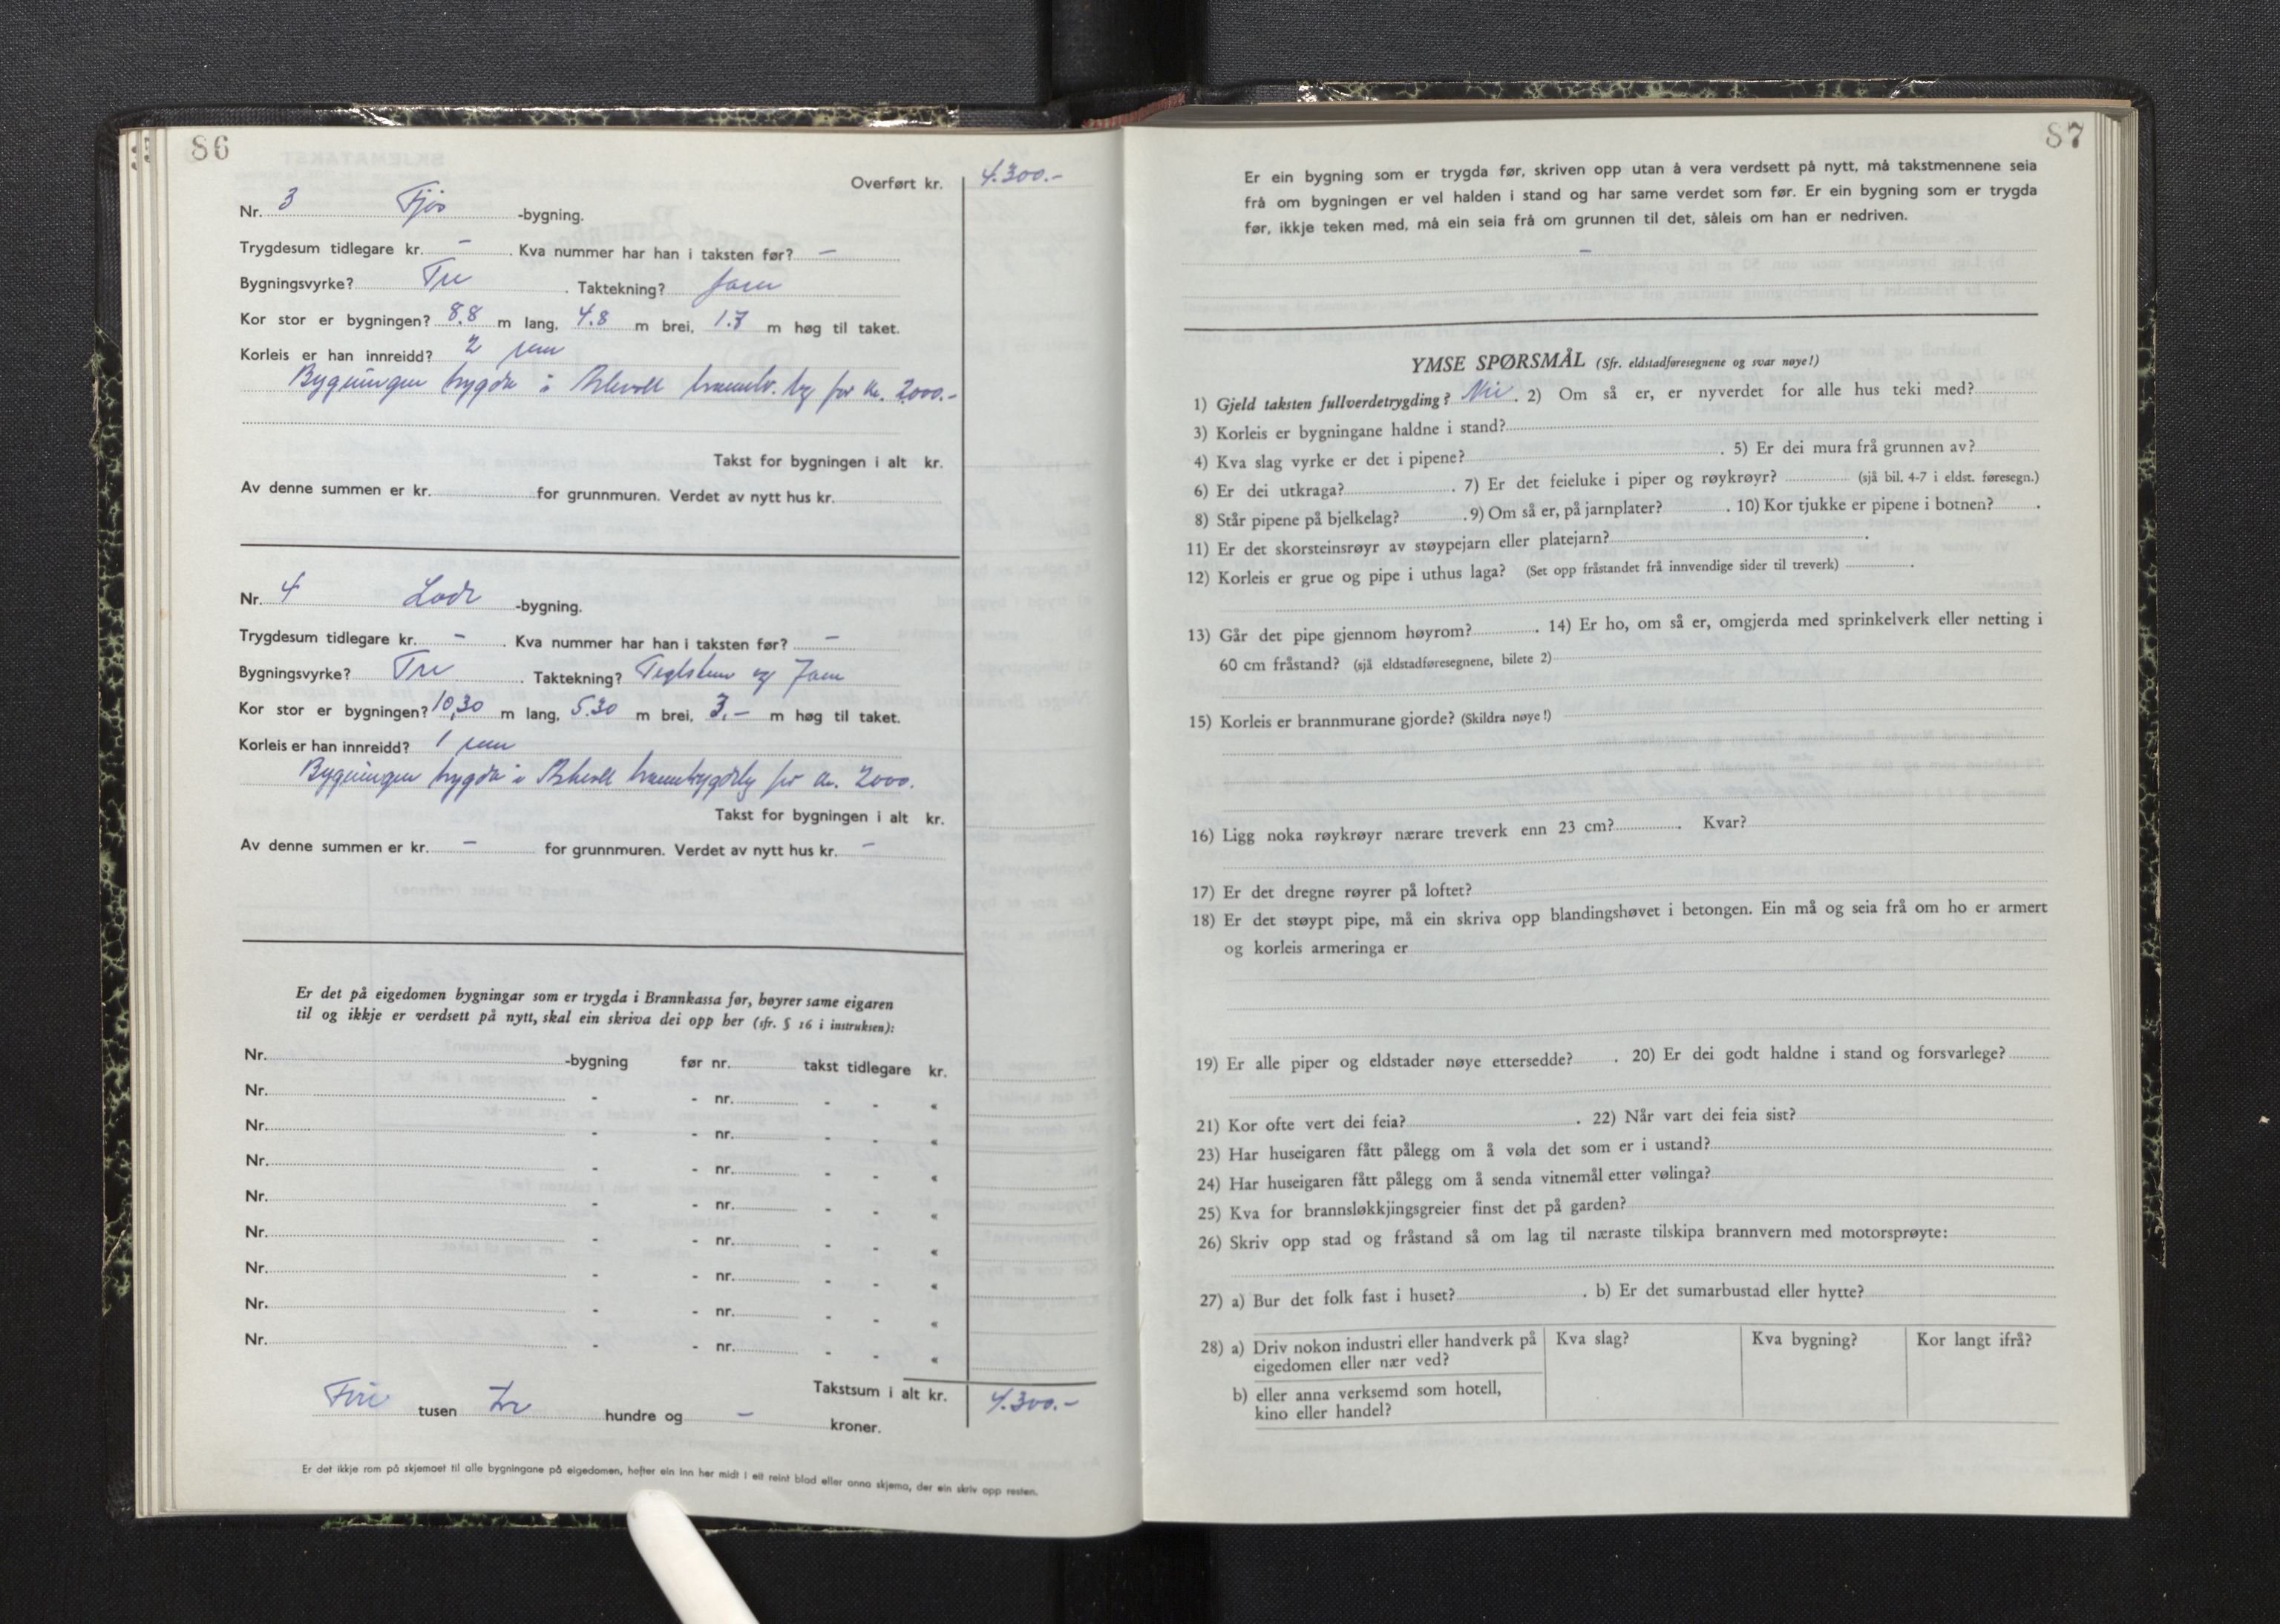 86
Overført kr. 4.300.-
Nr. 3 Fjos -bygning.
Trygdesum tidlegare kr. - . Kva nummer har han i taksten før? -
Bygningsvyrke? Tre . Taktekning? Jarn
Kor stor er bygningen? 8.8 m lang, 4.8 m brei, 1.7 m høg til taket.
Korleis er han innreidd? 2 rum
Bygningen trygda i for kr. 2000.-
Takst for bygningen i alt kr.
Av denne summen er kr. for grunnmuren. Verdet av nytt hus kr.
Nr. 4 Lade -bygning.
Trygdesum tidlegare kr. - . Kva nummer har han i taksten før? -
Bygningsvyrke? Tre . Taktekning? Teglstein og Jarn
Kor stor er bygningen? 10,30 m lang, 5.30 m brei, 3,- m høg til taket.
Korleis er han innreidd? 1 rum
Bygningen trygda i for kr. 2000.
Takst for bygningen i alt kr.
Av denne summen er kr. - for grunnmuren. Verdet av nytt hus kr. -
Er det på eigedomen bygningar som er trygda i Brannkassa før, høyrer same eigaren
til og ikkje er verdsett på nytt, skal ein skriva dei opp her (sfr. § 16 i instruksen):
Nr. -bygning før nr. takst tidlegare kr.
Nr. - - nr. - - «
Nr. - - nr. - - «
Nr. - - nr. - - «
Nr. - - nr. - - «
Nr. - - nr. - - «
Nr. - - nr. - - «
Nr. - - nr. - - «
Nr. - - nr. - - «
Takstsum i alt kr. 4.300.-
Fire tusen tre hundre og - kroner.
Er det ikkje rom på skjemaet til alle bygningane på eigedomen, hefter ein inn her midt i eit reint blad eller anna skjema, der ein skriv opp resten.
87
Er ein bygning som er trygda før, skriven opp utan å vera verdsett på nytt, må takstmennene seia
frå om bygningen er vel halden i stand og har same verdet som før. Er ein bygning som er trygda
før, ikkje teken med, må ein seia frå om grunnen til det, såleis om han er nedriven.
-
YMSE SPØRSMÅL (Sfr. eldstadføresegnene og svar nøye!)
1) Gjeld taksten fullverdetrygding? Nei . 2) Om så er, er nyverdet for alle hus teki med?
3) Korleis er bygningane haldne i stand?
4) Kva slag vyrke er det i pipene? . 5) Er dei mura frå grunnen av?
6) Er dei utkraga? . 7) Er det feieluke i piper og røykrøyr? (sjå bil. 4-7 i eldst. føresegn.)
8) Står pipene på bjelkelag? . 9) Om så er, på jarnplater? . 10) Kor tjukke er pipene i botnen? .
11) Er det skorsteinsrøyr av støypejarn eller platejarn? .
12) Korleis er grue og pipe i uthus laga? (Set opp fråstandet frå innvendige sider til treverk) .
13) Går det pipe gjennom høyrom? . 14) Er ho, om så er, omgjerda med sprinkelverk eller netting i
60 cm fråstand? (sjå eldstadføresegnene, bilete 2)
15) Korleis er brannmurane gjorde? (Skildra nøye!)
16) Ligg noka røykrøyr nærare treverk enn 23 cm? . Kvar?
17) Er det dregne røyrer på loftet?
18) Er det støypt pipe, må ein skriva opp blandingshøvet i betongen. Ein må og seia frå om ho er armert
og korleis armeringa er
19) Er alle piper og eldstader nøye ettersedde? . 20) Er dei godt haldne i stand og forsvarlege?
21) Kor ofte vert dei feia? . 22) Når vart dei feia sist?
23) Har huseigaren fått pålegg om å vøla det som er i ustand?
24) Har huseigaren fått pålegg om å senda vitnemål etter vølinga?
25) Kva for brannsløkkjingsgreier finst det på garden?
26) Skriv opp stad og fråstand så om lag til næraste tilskipa brannvern med motorsprøyte:
27) a) Bur det folk fast i huset? . b) Er det sumarbustad eller hytte?
28) a) Driv nokon industri eller handverk på Kva slag? Kva bygning? Kor langt ifrå?
eigedomen eller nær ved?
b) eller anna verksemd som hotell,
kino eller handel?